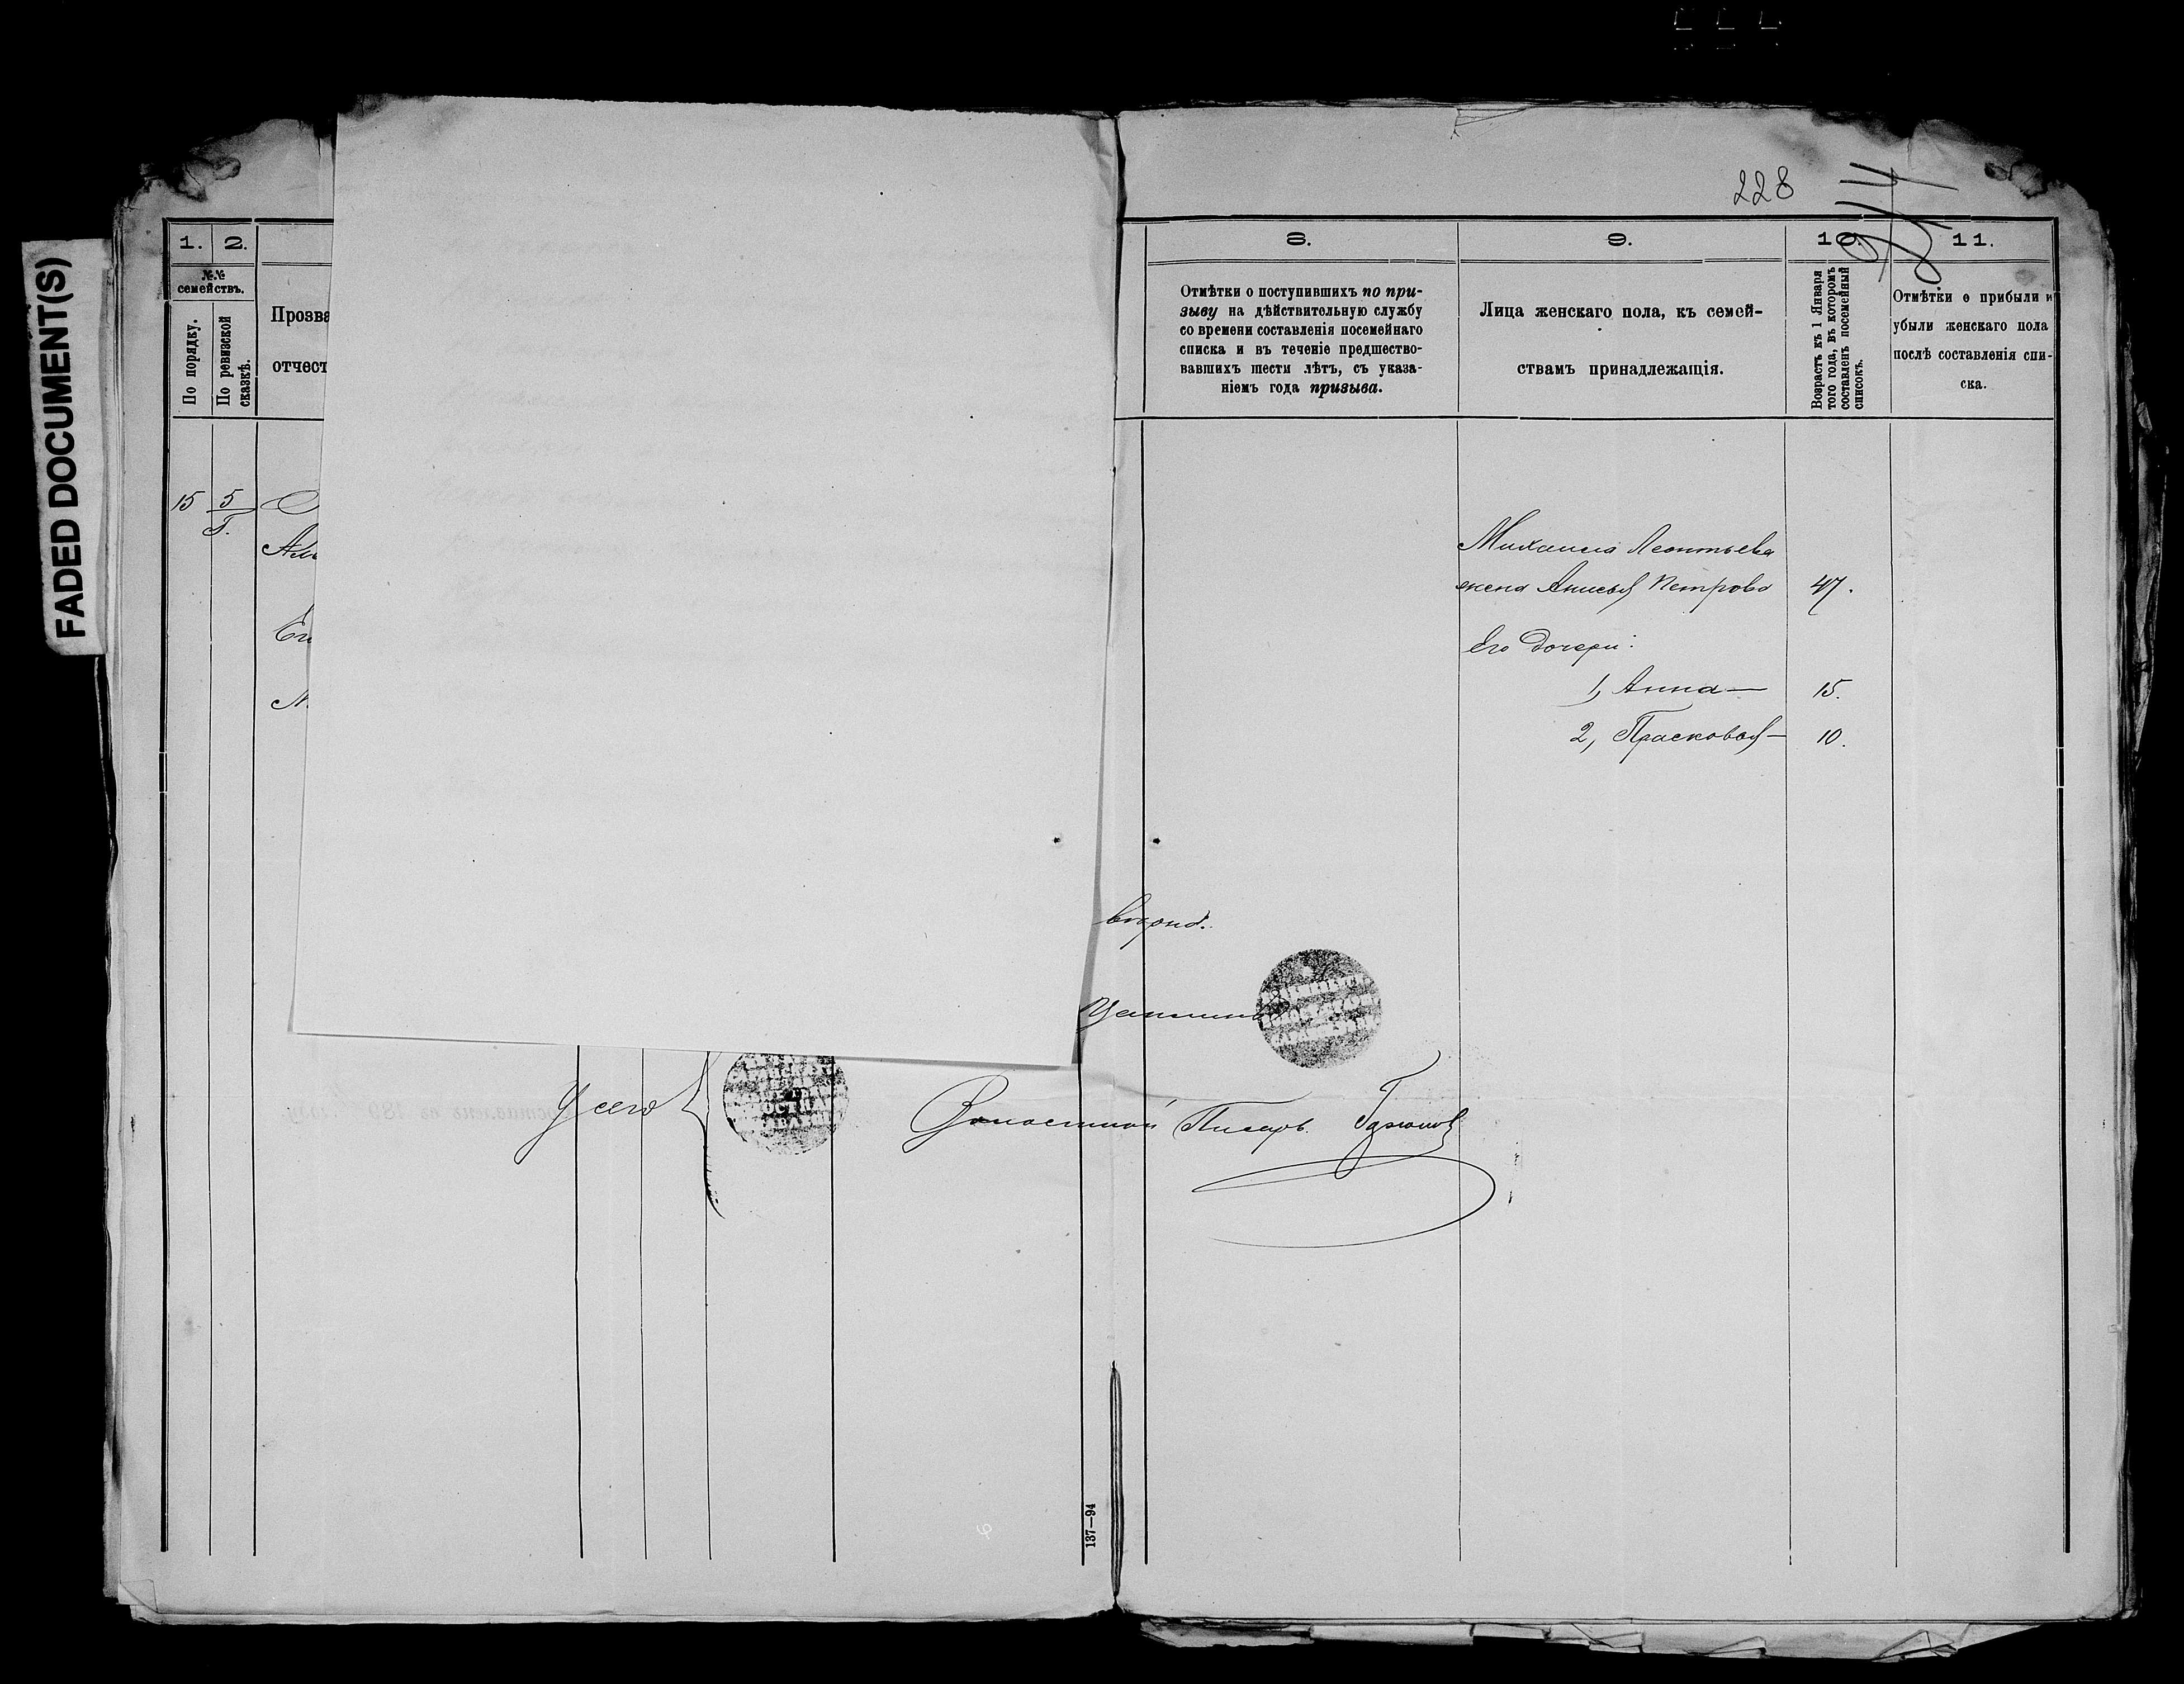 FADED DOCUMENT(S)
228
1. 2.
№.№
семействъ.
По порядку.
По ревизской
сказкѣ.
Прозва
отчест
15 5
8. 9. 10. 11.
Отмѣтки о поступившихъ по при-
зыву на дѣйствительную службу
со времени составленія посемейнаго
списка и въ теченіе предшество-
вавшихъ шести лѣтъ, съ указа-
ніемъ года призыва.
Лица женскаго пола, къ семей-
ствамъ принадлежащія.
Возрастъ къ 1 Января
того года, въ которомъ
составленъ посемейный
списокъ.
Отмѣтки о прибыли и
убыли женскаго пола
послѣ составленія спи-
ска.
Михаила Леонтьева
жена Анисья Петрова 47.
Его дочери:
1, Анна — 15.
2, Прасковья — 10.
Волостной Писарь
137—94